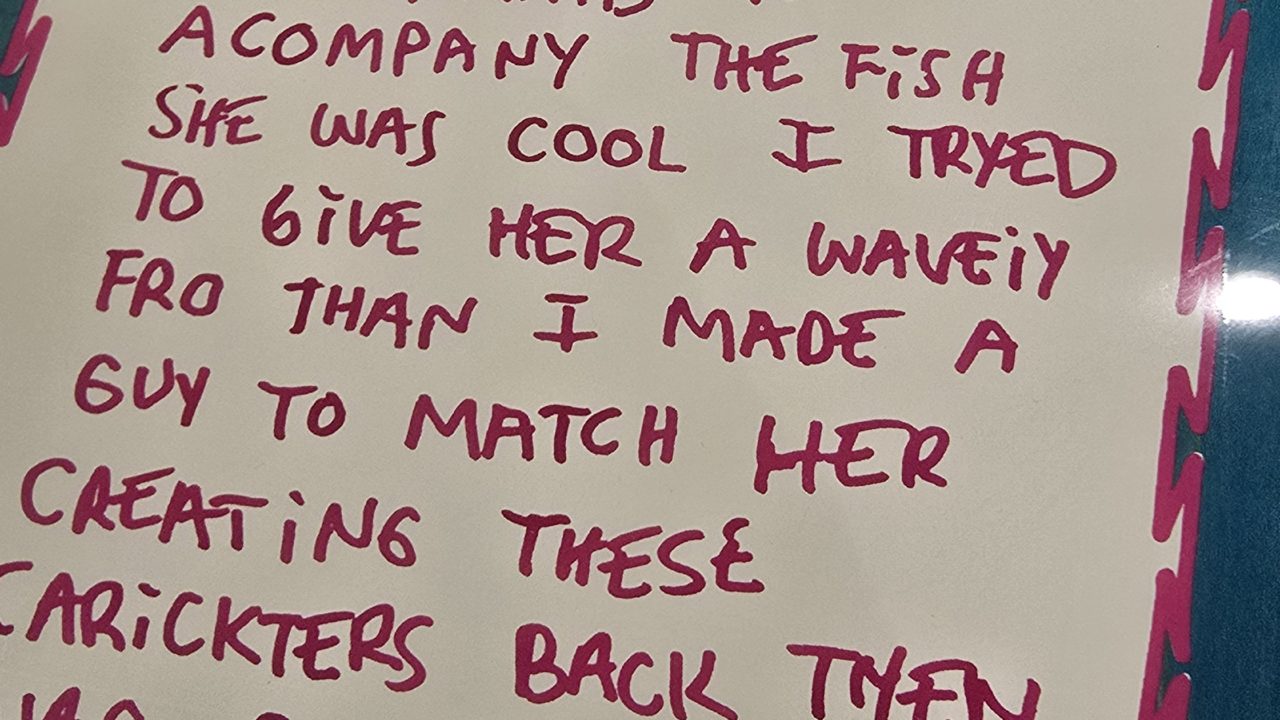 ACOMPANY THE FiSH
SHE WAS COOL I TRYED
TO GiVE HER A WAVEiY
FRO THAN I MADE A
GUY TO MATCH HER
CREATiNG THESE
CARiCKTERS BACK THEN